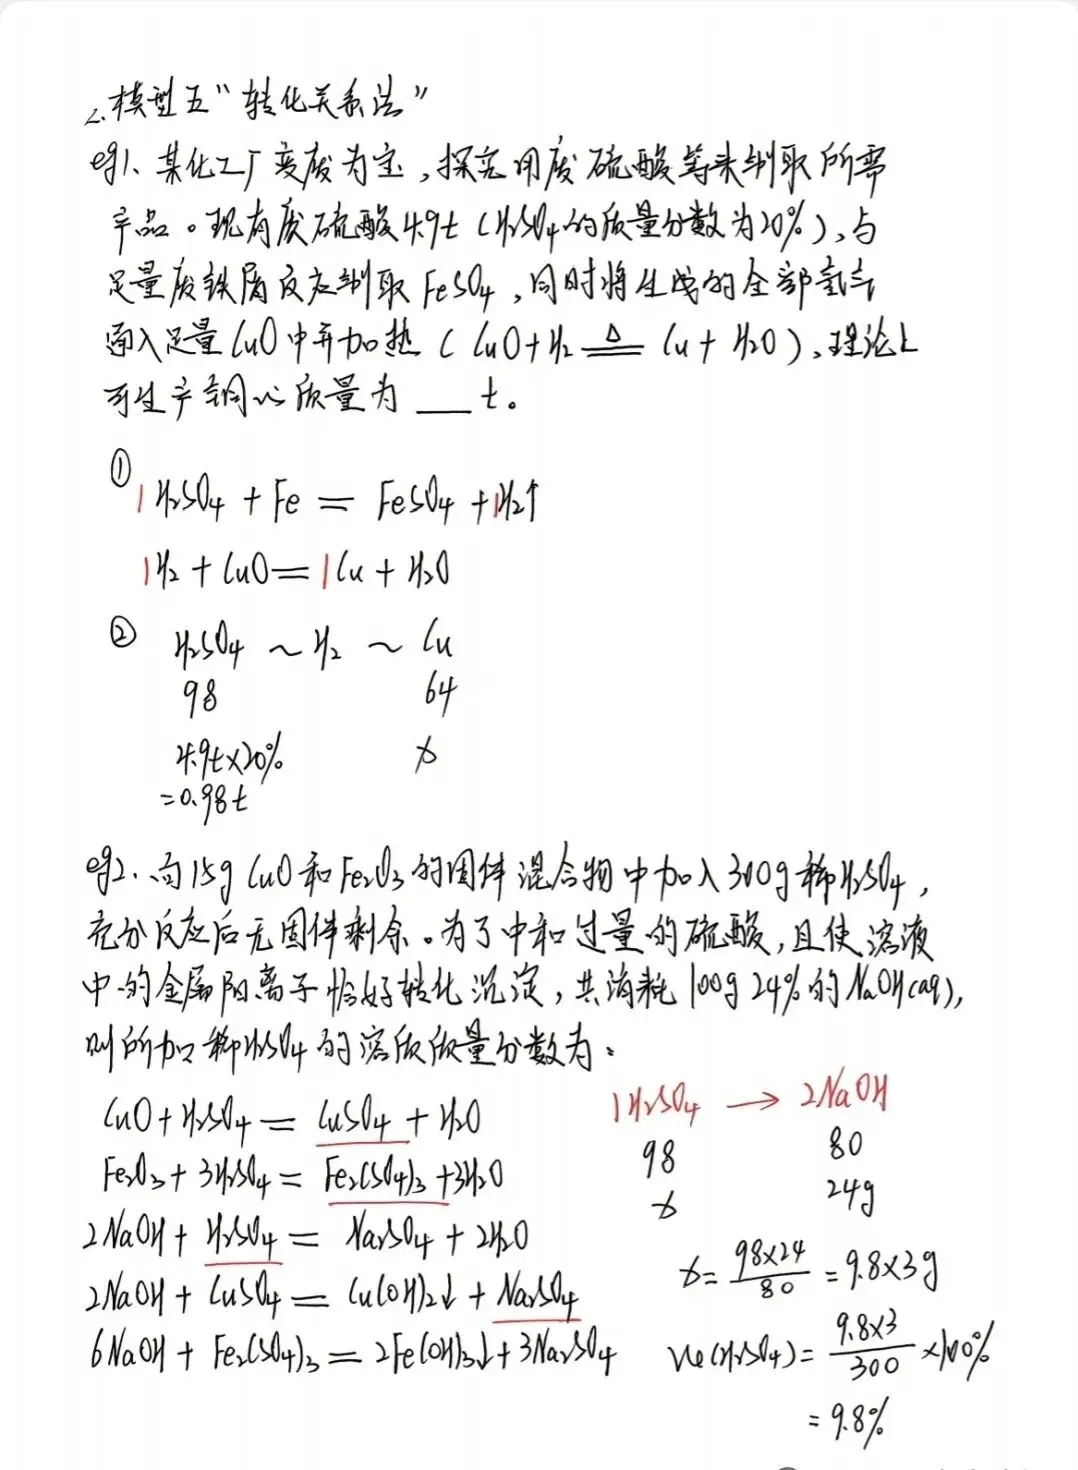 2.模型五“转化关系法”
eg1、某化工厂变废为宝，探究用废硫酸等来制取所需
产品。现有废硫酸4.9t（H₂SO₄的质量分数为20%），与
足量废铁屑反应制取FeSO₄，同时将生成的全部氢气
通入足量CuO中并加热（CuO+H₂ ≜ Cu+H₂O），理论上
可生产铜的质量为___t。
① 1H₂SO₄ + Fe = FeSO₄ + 1H₂↑
1H₂ + CuO = 1Cu + H₂O
② H₂SO₄ ~ H₂ ~ Cu
98 64
4.9t×20% x
=0.98t
eg2、向15g CuO和Fe₂O₃的固体混合物中加入300g稀H₂SO₄，
充分反应后无固体剩余。为了中和过量的硫酸，且使溶液
中的金属阳离子恰好转化沉淀，共消耗100g 24%的NaOH(aq)，
则所加稀H₂SO₄的溶质质量分数为：
CuO + H₂SO₄ = CuSO₄ + H₂O
Fe₂O₃ + 3H₂SO₄ = Fe₂(SO₄)₃ + 3H₂O
2NaOH + H₂SO₄ = Na₂SO₄ + 2H₂O
2NaOH + CuSO₄ = Cu(OH)₂↓ + Na₂SO₄
6NaOH + Fe₂(SO₄)₃ = 2Fe(OH)₃↓ + 3Na₂SO₄
1H₂SO₄ → 2NaOH
98 80
x 24g
x = 98×24/80 = 9.8×3g
(H₂SO₄) = 9.8×3/300 ×100%
= 9.8%